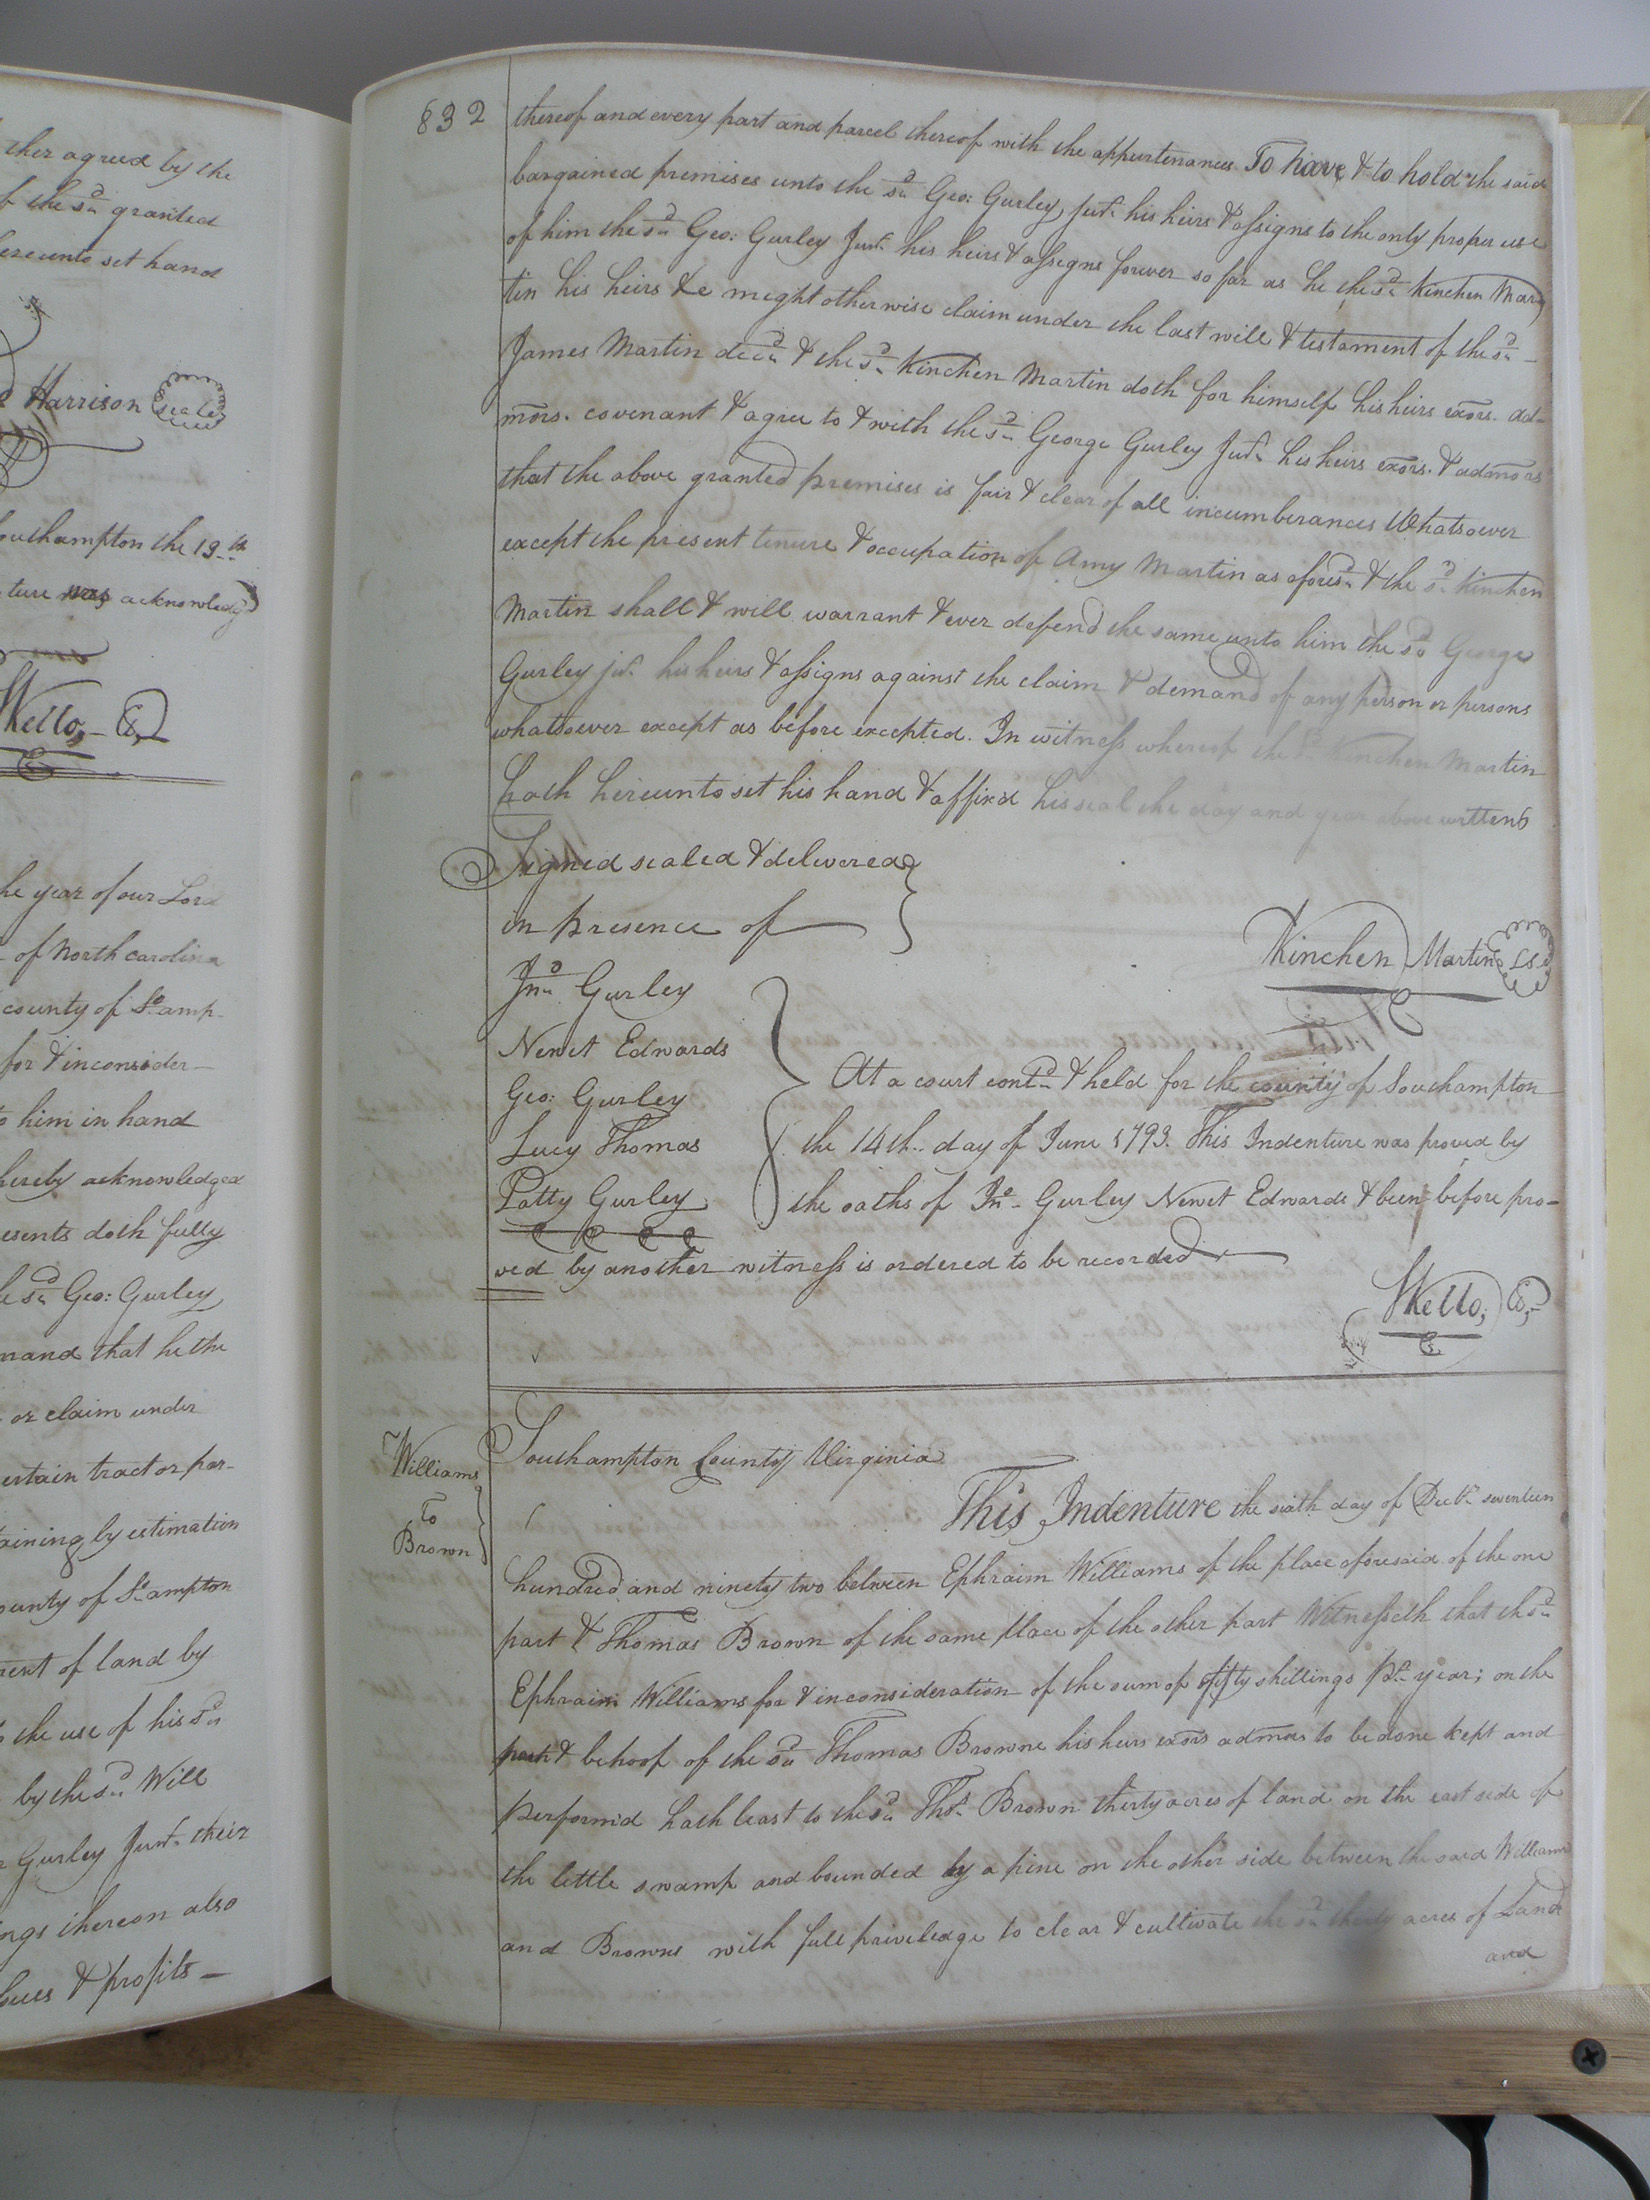 ther agreed by the
f the sd. granted
hereunto set hand
Harrison seale
outhampton the 13th
ture was acknowledgd
SKello, Ct.
he year of our Lord
of North carolina
county of So.amp-
for & inconsider-
to him in hand
hereby acknowledged
esents doth fully
e sd. Geo: Gurley
mand that he the
or claim under
ertain tract or par-
taining by estimation
ounty of So.ampton
ment of land by
the use of his sd.
by the sd. Will
Gurley Junr. their
ngs thereon also
sues & profits -
832
thereof and every part and parcel thereof with the appurtenances To have & to hold the said
bargained premises unto the sd. Geo: Gurley, Junr. his heirs & assigns to the only proper use
of him the sd. Geo: Gurley Junr. his heirs & assigns forever so far as he the sd. Kinchen Mar
tin his heirs &c might otherwise claim under the last will & testament of the sd. -
James Martin decd. & the sd. Kinchen Martin doth for himself his heirs exors. ad-
mors. covenant & agree to & with the sd. George Gurley Junr. his heirs exors. & admors
that the above granted premises is fair & clear of all incumberances Whatsoever
except the present tenure & occupation of Amy Martin as aforesd. & the sd. Kinchen
Martin shall & will warrant & ever defend the same unto him the sd. George
Gurley junr. his heirs & assigns against the claim & demand of any person or persons
whatsoever except as before excepted. In witness whereof the sd. Kinchen Martin
hath hereunto set his hand & affixd his seal the day and year above written
Signed sealed & delivered
in presence of
Kinchen Martin LS
Jno. Gurley
Newit Edwards
Geo: Gurley
Lucy Thomas
Patty Gurley
At a court contd. & held for the county of Southampton
the 14th.. day of June 1793. This Indenture was proved by
the oaths of Jno. Gurley Newit Edwards & been before pro-
ved by another witness is ordered to be recorded
SKello, Ct.
Williams
To
Brown
Southampton County Virginia
This Indenture the sixth day of Decbr. seventeen
hundred and ninety two between Ephraim Williams of the place aforesaid of the one
part & Thomas Brown of the same place of the other part Witnesseth that th sd.
Ephraim Williams for & inconsideration of the sum of fifty shillings pr. year; on the
part & behoof of the sd. Thomas Browne his heirs exors admors to be done kept and
performd hath least to the sd. Thos. Brown thirty acres of land on the east side of
the little swamp and bounded by a pine on the other side between the said Williams
and Browne with full priveledge to clear & cultivate the sd. thirty acres of Land
and